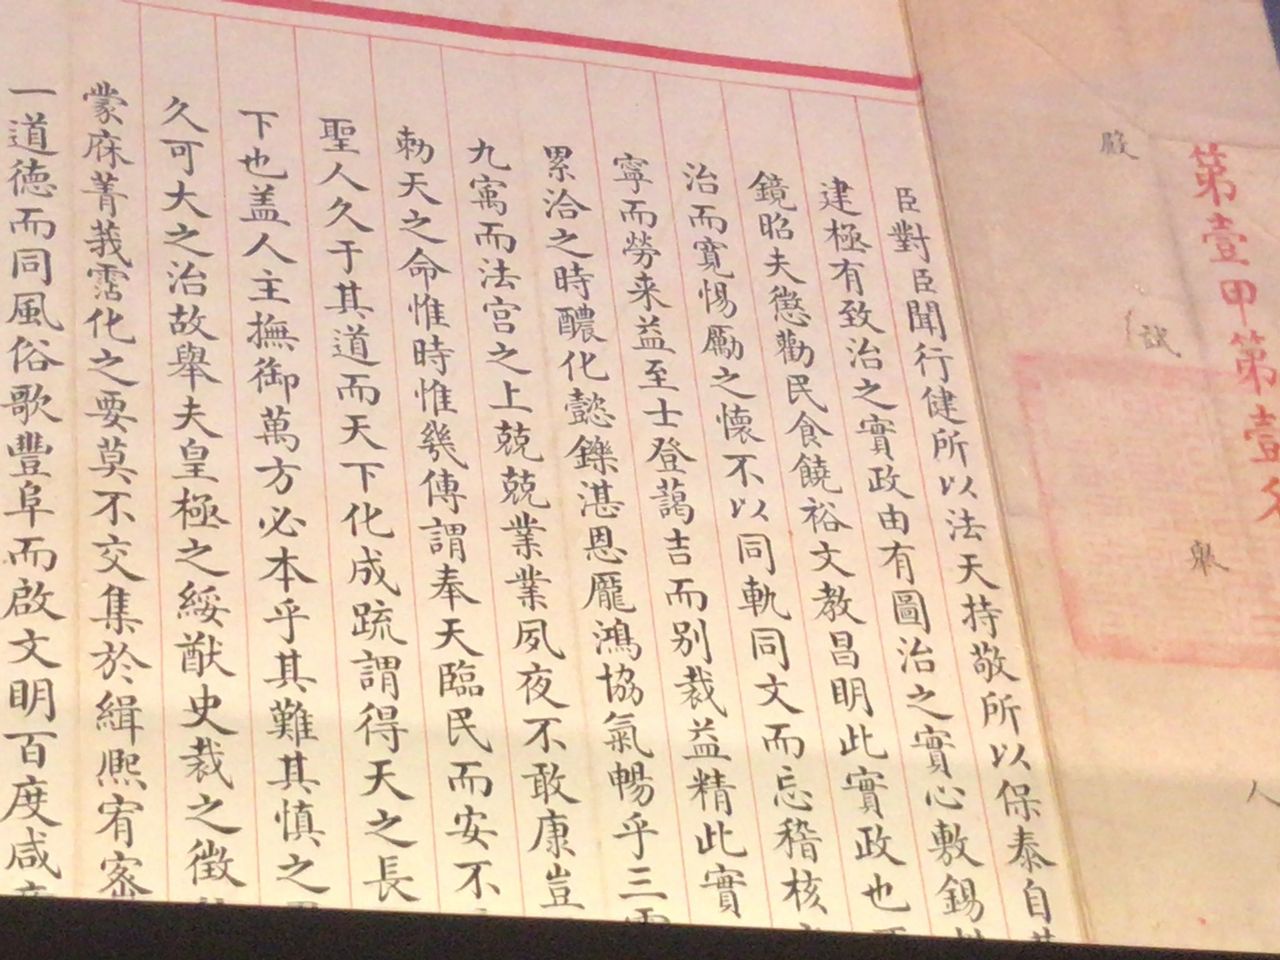 第壹甲第壹名
殿
試
舉
人
臣對臣聞行健所以法天持敬所以保泰自
建極有致治之實政由有圖治之實心敷錫
鏡昭夫懲勸民食饒裕文教昌明此實政也
治而寬惕勵之懷不以同軌同文而忘稽核
寧而勞来益至士登藹吉而别裁益精此實
累洽之時醲化懿鑠湛恩龐鴻協氣暢乎三
九寓而法宫之上兢兢業業夙夜不敢康豈
勑天之命惟時惟幾傳謂奉天臨民而安不
聖人久于其道而天下化成疏謂得天之長
下也盖人主撫御萬方必本乎其難其慎之
久可大之治故舉夫皇極之綏猷史裁之徴
蒙庥菁莪霑化之要莫不交集於緝熙宥密
一道德而同風俗歌豐阜而啟文明百度咸